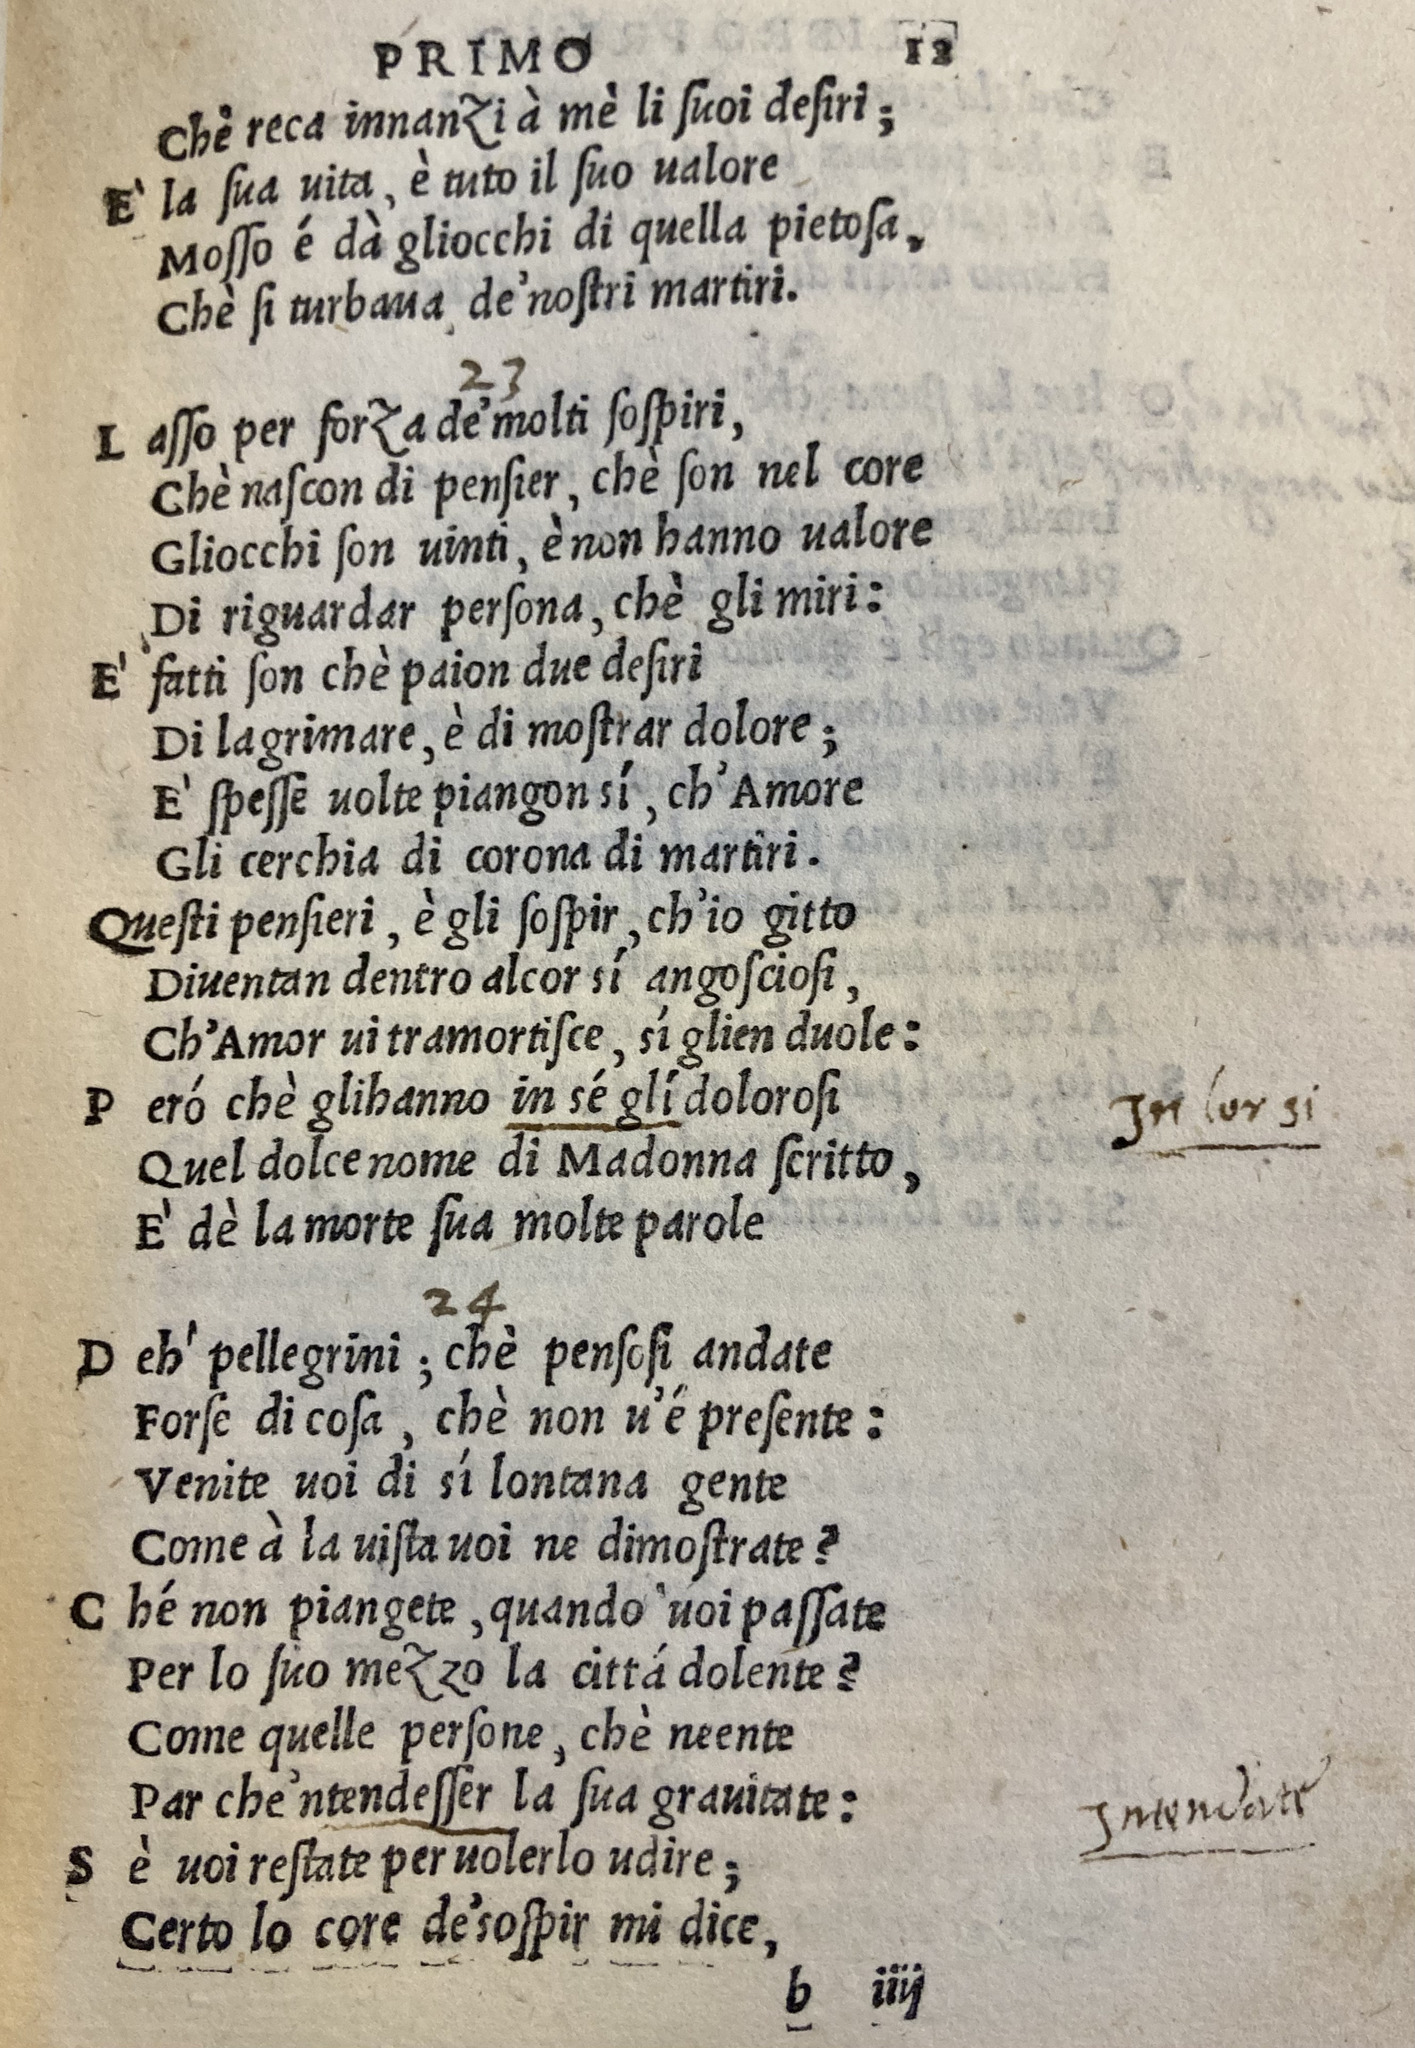 PRIMO 12
Chè reca innanzi à mè li ſuoi deſiri;
E' la ſua uita, è tuto il ſuo ualore
Moſſo é dà gliocchi di quella pietoſa,
Chè ſi turbaua de' noſtri martiri.
23
L aſſo per forza de' molti ſoſpiri,
Chè naſcon di penſier, chè ſon nel core
Gliocchi ſon uinti, è non hanno ualore
Di riguardar perſona, chè gli miri:
E' fatti ſon chè paion due deſiri
Di lagrimare, è di moſtrar dolore;
E' ſpeſſe uolte piangon sí, ch'Amore
Gli cerchia di corona di martiri.
Queſti penſieri, è gli ſoſpir, ch'io gitto
Diuentan dentro alcor sí angoſcioſi,
Ch'Amor ui tramortiſce, sí glien duole:
P eró chè glihanno in sé glí doloroſi In lor si
Quel dolce nome di Madonna ſcritto,
E' dè la morte ſua molte parole
24
D eh' pellegrini; chè penſoſi andate
Forſe di coſa, chè non u'é preſente:
Venite uoi di sí lontana gente
Come à la uiſta uoi ne dimoſtrate?
C hé non piangete, quando uoi paſſate
Per lo ſuo mezzo la cittá dolente?
Come quelle perſone, chè neente
Par che'ntendeſſer la ſua grauitate: Intendate
S è uoi reſtate per uolerlo udire;
Certo lo core de' soſpir mi dice,
b iiij